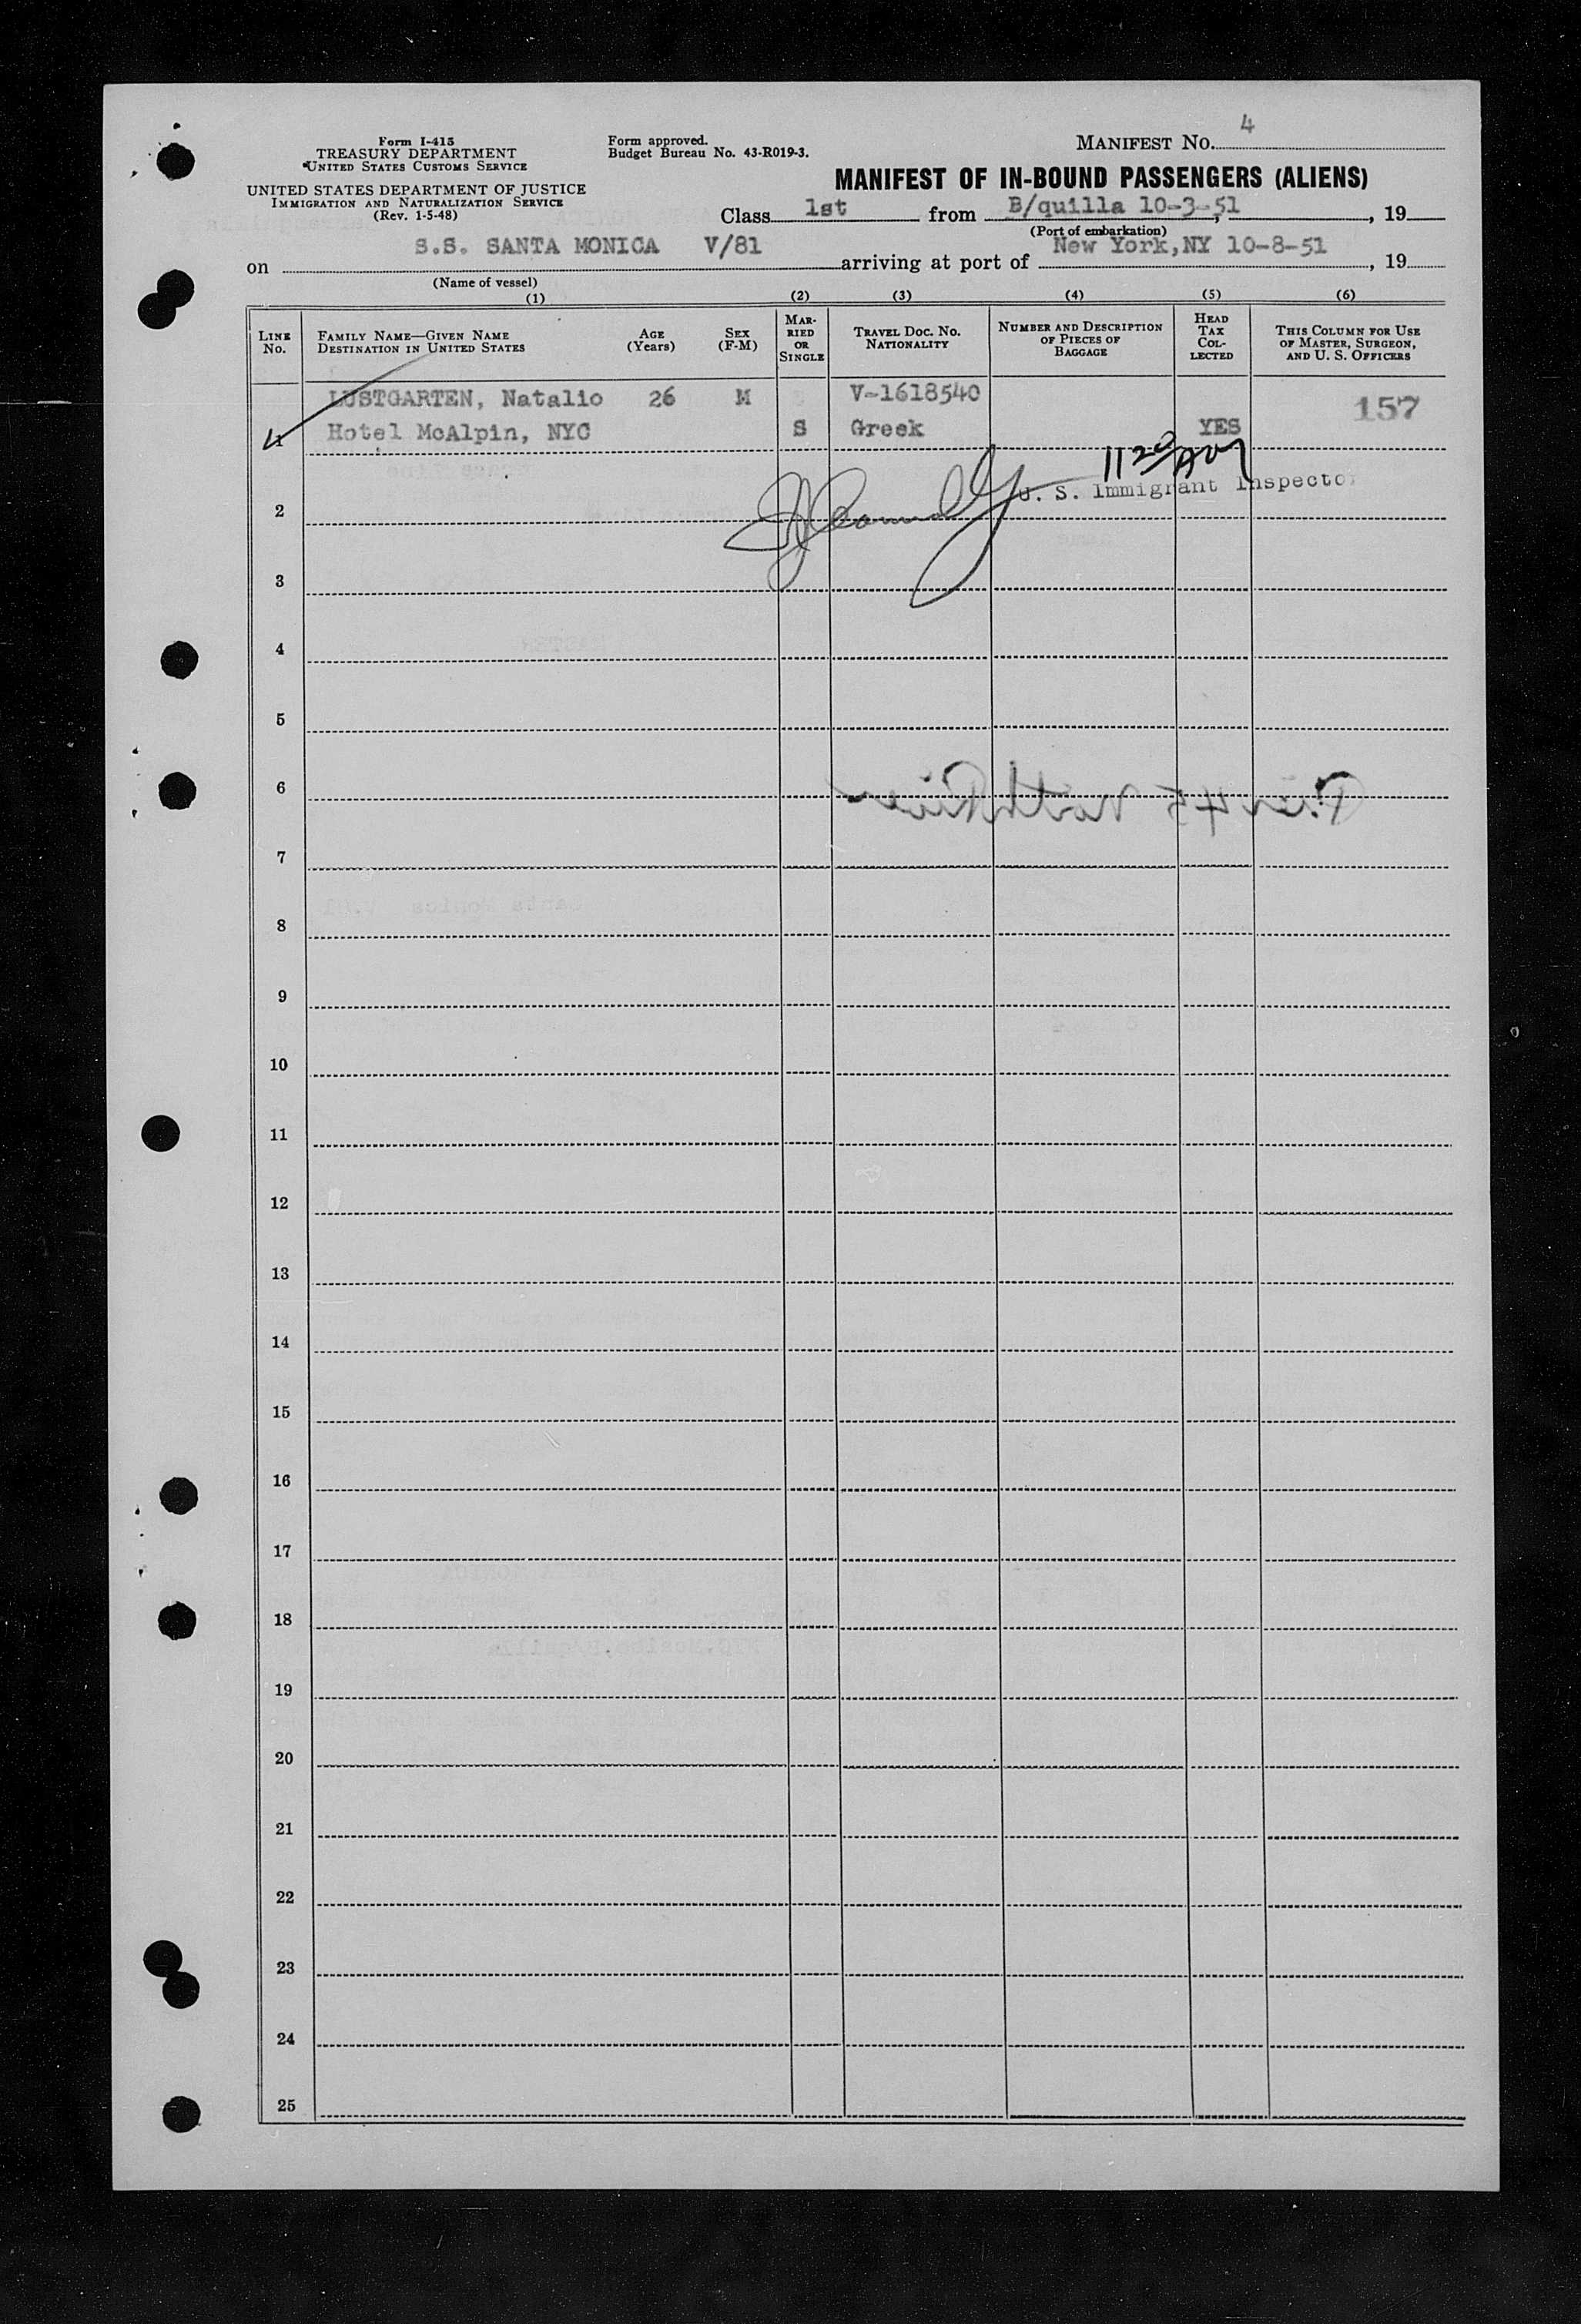 Form I-415
TREASURY DEPARTMENT
UNITED STATES CUSTOMS SERVICE
UNITED STATES DEPARTMENT OF JUSTICE
IMMIGRATION AND NATURALIZATION SERVICE
(Rev. 1-5-48)
Form approved.
Budget Bureau No. 43-R019-3.
MANIFEST No. 4
MANIFEST OF IN-BOUND PASSENGERS (ALIENS)
Class 1st from B/quilla 10-3-51, 19
(Port of embarkation)
on S.S. SANTA MONICA V/81 arriving at port of New York,NY 10-8-51, 19
(Name of vessel)
(1) (2) (3) (4) (5) (6)
LINE No.
FAMILY NAME—GIVEN NAME
DESTINATION IN UNITED STATES
AGE (Years)
SEX (F-M)
MARRIED OR SINGLE
TRAVEL DOC. NO.
NATIONALITY
NUMBER AND DESCRIPTION OF PIECES OF BAGGAGE
HEAD TAX COLLECTED
THIS COLUMN FOR USE OF MASTER, SURGEON, AND U. S. OFFICERS
LUSTGARTEN, Natalio 26 M V-1618540 157
1 Hotel McAlpin, NYC S Greek YES
U. S. Immigrant Inspector
2
3
4
5
6 Pier 45 North River
7
8
9
10
11
12
13
14
15
16
17
18
19
20
21
22
23
24
25